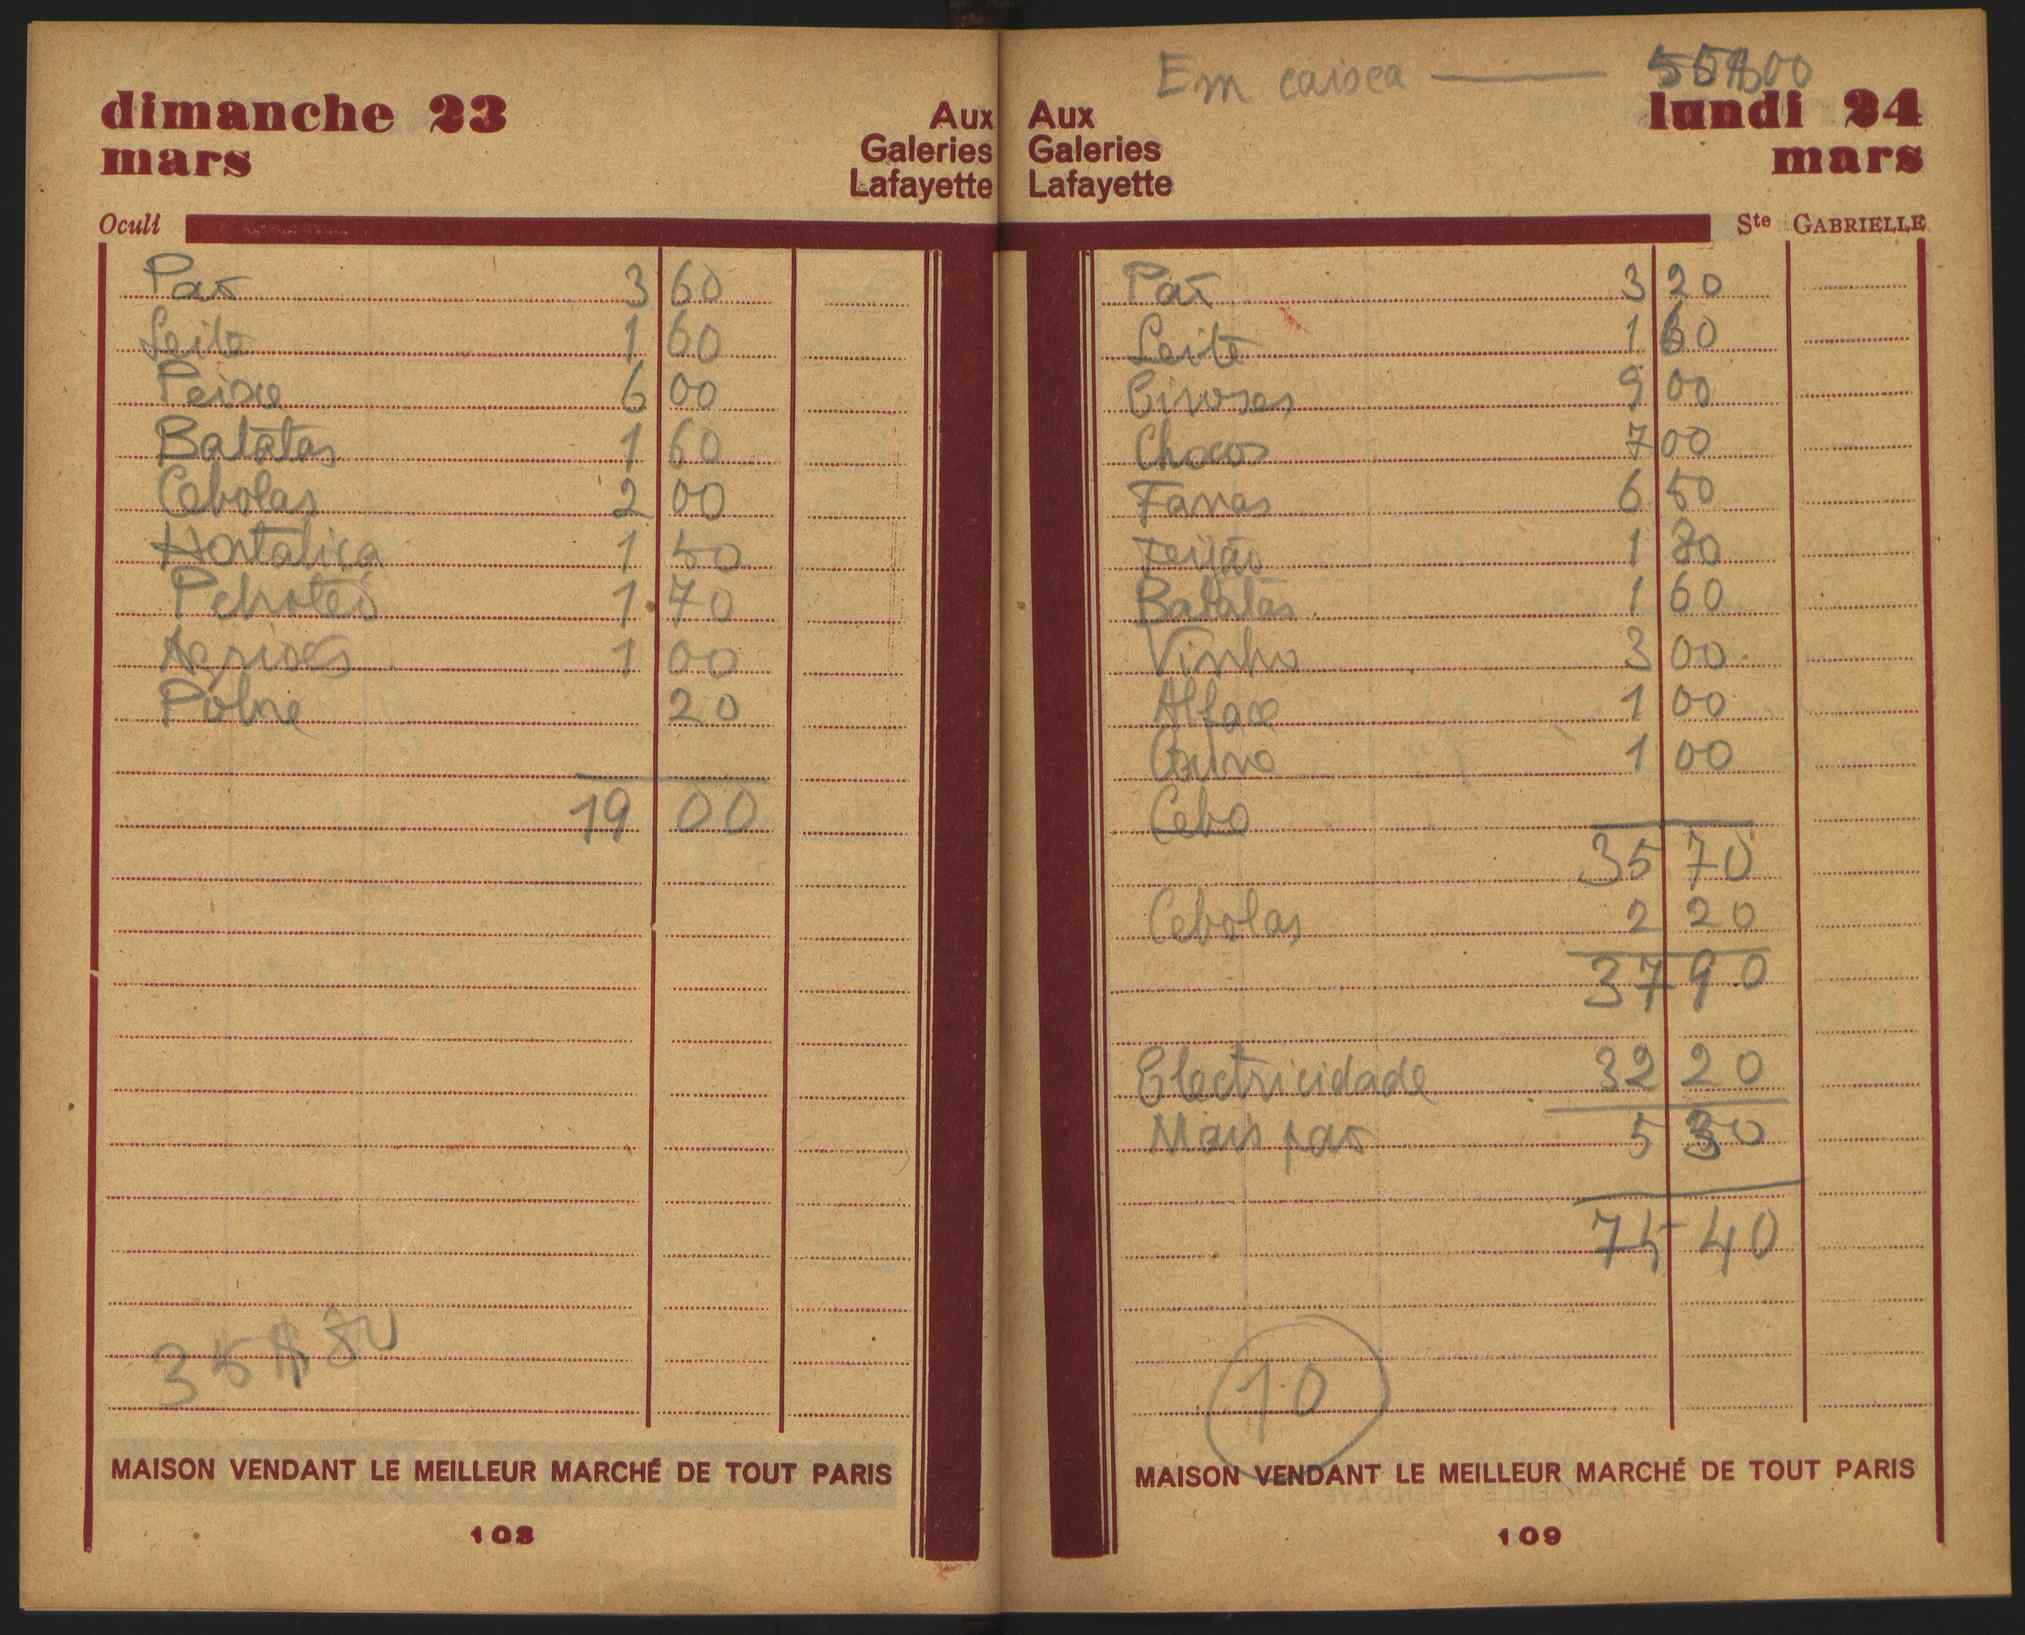 dimanche 23
mars
Aux
Galeries
Lafayette
Oculi
Pão 3 60
Leite 1 60
Peixe 6 00
Batatas 1 60
Cebolas 2 00
Hortaliça 1 50
Petroleo 1.70
Agriões 1 00
Pobre 20
19 00
35$80
MAISON VENDANT LE MEILLEUR MARCHÉ DE TOUT PARIS
108
Em caixa — 55$00
Aux
Galeries
Lafayette
lundi 24
mars
Ste GABRIELLE
Pão 3 20
Leite 1 60
9 00
Chocos 7 00
Favas 6 50
Feijão 1 80
Batatas 1 60
Vinho 3 00
Alface 1 00
1 00
Cebo
35 70
Cebolas 2 20
37 90
Electricidade 32 20
Mais pão 5 30
75 40
10
MAISON VENDANT LE MEILLEUR MARCHÉ DE TOUT PARIS
109